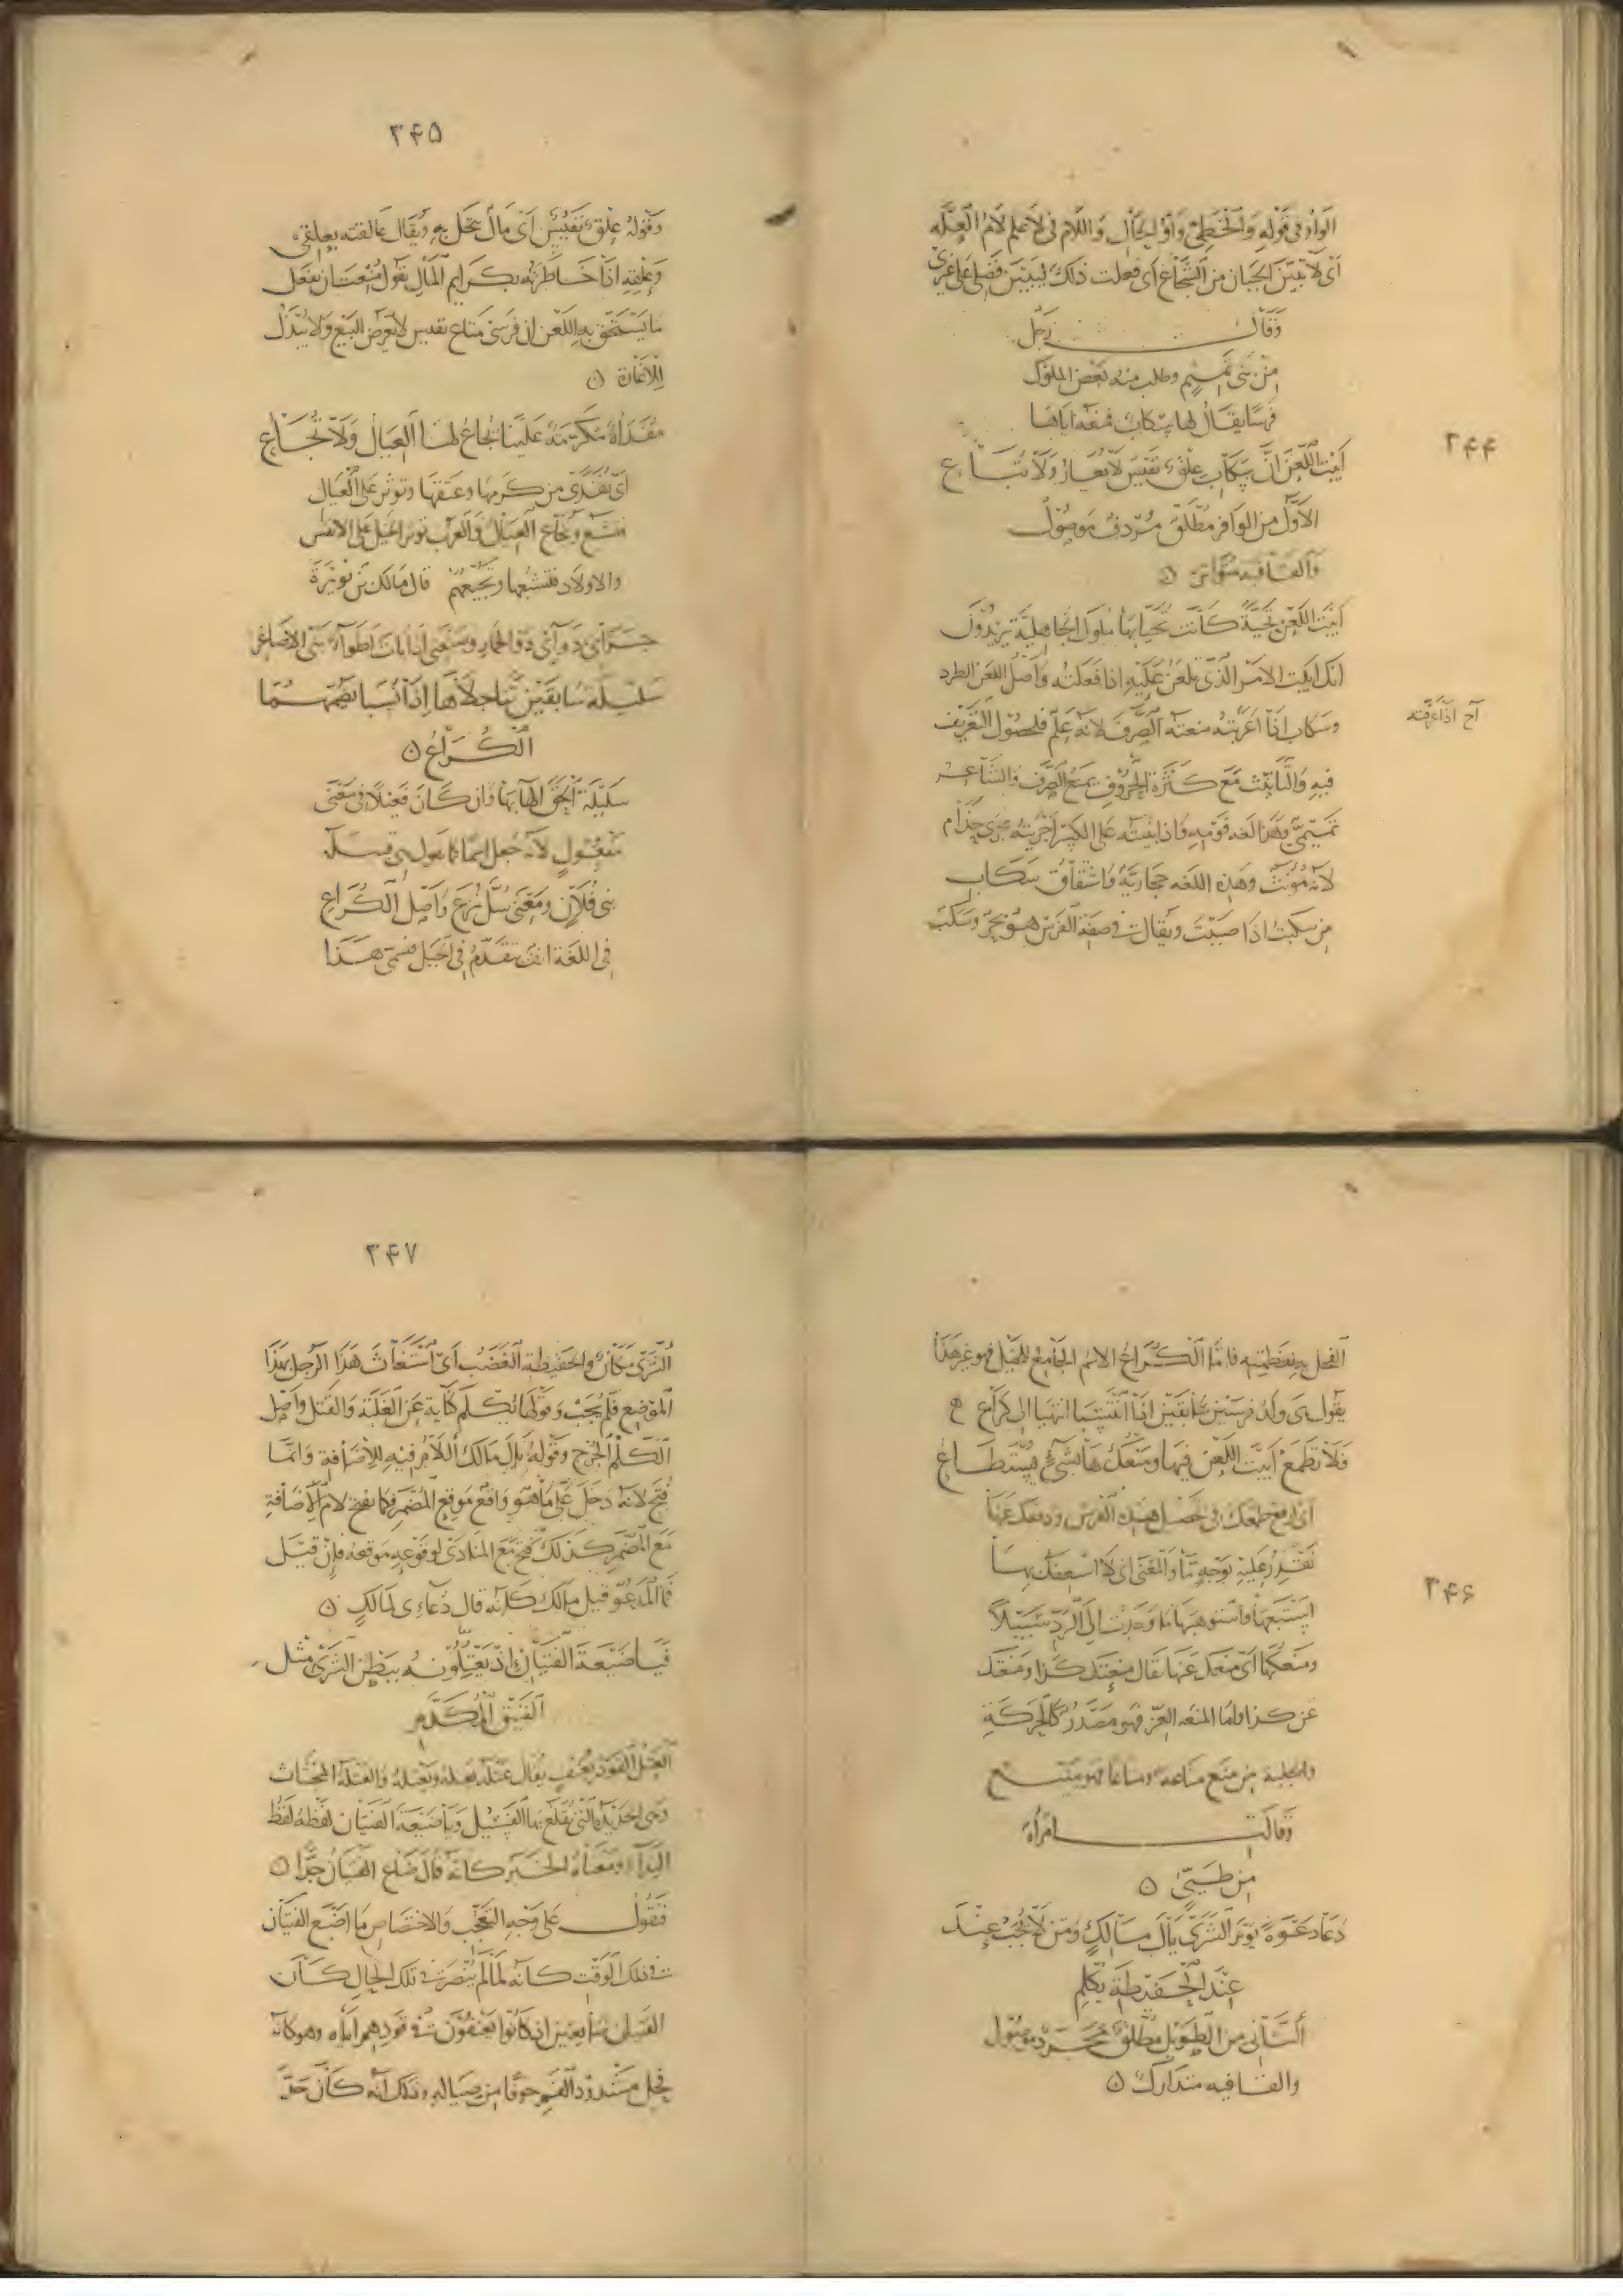 ٢۴۴
الواو في قوله والخطي واو الحال واللام في لاعلم لام العلة
اى لاتبين الجبان من الشجاع اى فعلت ذلك ليبين فضلى على غيرى
وقال رجل
من بنى تميم وطلب منه بعض الملوك
فرسا يقال لها سكاب فمنعه اياها
ابيت اللعن ان سكاب علق نفيس لا يعار ولا تباع
الاول من الوافر مطلق مردف موصول
والقافيه متواتر
ابيت اللعن تحية كانت تحيا بها ملوك الجاهلية يريدون
انك ابيت الامر الذى تلعن عليه اذا فعلته واصل اللعن الطرد
وسكاب اذا اعربته منعته الصرف لانه علم فلحصول التعريف
فيه والتانيث مع كثرة الحروف يمنع الصرف والشاعر
تميمى وهذا لغه قومه واذا بنيته على الكسر اجريته مجرى حذام
لانه مؤنث وهذه اللغه حجازية واشتقاق سكاب
من سكبت اذا صببت ويقال في صفة الفرس هو بحر وسكب
٢۴۵
وقوله علق نفيس اى مال يبخل به ويقال عالقته بعلقى
وعلقه اذا خاطرته بكرايم المال يقول
ما يستحق به اللعن ان فرسى متاع نفيس لا يعرض للبيع ولا يبذل
للاعارة
مفداة مكرمة علينا يجاع لها العيال ولا تجاع
اى تفدى من كرمها وعتقها وتوثر على العيال
فتشبع ويجاع العيال والعرب توثر الخيل على الانفس
والاولاد فتشبعها وتجيعهم قال مالك بن نويرة
جزانى دوائى ذو الخمار وصنعتى اذا بات اطواء بنى الاصاغر
سليلة سابقين تناجلاها اذا نسبا يضمهما
الكراع
سليلة الحق الها بها وان كان فعيلا فى معنى
مفعول لانه جعل اسما كما يقول هى
بنى فلان ومعنى سل نزع واصل الكراع
فى اللغة انف يتقدم فى الجبل فسمى هذا
٢۴۶
الفحل به لعظمته فاما الكراع الاسم الجامع للخيل فهو غير هذا
يقول هى ولد فرسين سابقين اذا انتسبا انتهيا الى كراع
فلا تطمع ابيت اللعن فيها ومنعكها بشىء يستطاع
اى ارفع طمعك فى تحصيل هذه الفرس ودفعك عنها
نقدر عليه بوجه ما والمعنى اى لا اسعفك بها
استبعتها فاستوهبتها ما وجدت الى الرد سبيلا
ومنعكها اى منعك عنها يقال منعتك كذا ومنعتك
عن كذا واما المنعه العز فهو مصدر كالحركة
والجلبة من منع مناعة ومناعا فهو منيع
وقالت امراة
من طيئ
دعا دعوة يوم الشرى يال مالك ومن لا يجب عند
عند الحفيظة يكلم
الثانى من الطويل مطلق مجرد موصول
والقافيه متدارك
٢۴٧
الشرى مكان والحفيظة الغضب اى استغاث هذا الرجل بهذا
الموضع فلم يجب وقولها يكلم كناية عن الغلبة والقتل واصل
الكلم الجرح وقوله يال مالك اللام فيه للاضافة وانما
فتح لانه دخل على ما هو واقع موقع المضمر فكما يفتح لام الاضافة
مع المضمر كذلك فتح مع المنادى لوقوعه موقعه فان قيل
فما المدعو قيل مالك كانه قال دعاءى لمالك
فيا ضيعة الفتيان اذ يعتلونه ببطن الشرى مثل
الفنيق المكدم
العتل القود بعنف يقال عتله يعتله ويعتله والعتلة المجثاث
وهى الحديدة التى يقلع بها الفسيل ويا ضيعة الفتيان لفظه لفظ
النداء ومعناه الخبر كانه قال ضاع الفتيان جدا
فقول على وجه التعجب والاختصاص ما اضيع الفتيان
فى ذلك الوقت كانه لما لم ينصر فى تلك الحال كان
الفتيان ضايعين اذ كانوا يعنفون فى قودهم اياه وهو كانه
فحل مشدود الفم خوفا من صياله وذلك انه كان